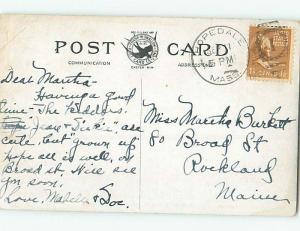 POST CARD
COMMUNICATION
ADDRESS
HOPEDALE
PM
MASS.
Dear Martha -
Having a good
time - The kiddies,
Jean + Dixie, are
cute, but grown up
Hope all is well, on
Broad St. Will see
you soon.
Love, Mabelle & Doc.
Miss Martha Burkett
80 Broad St
Rockland
Maine